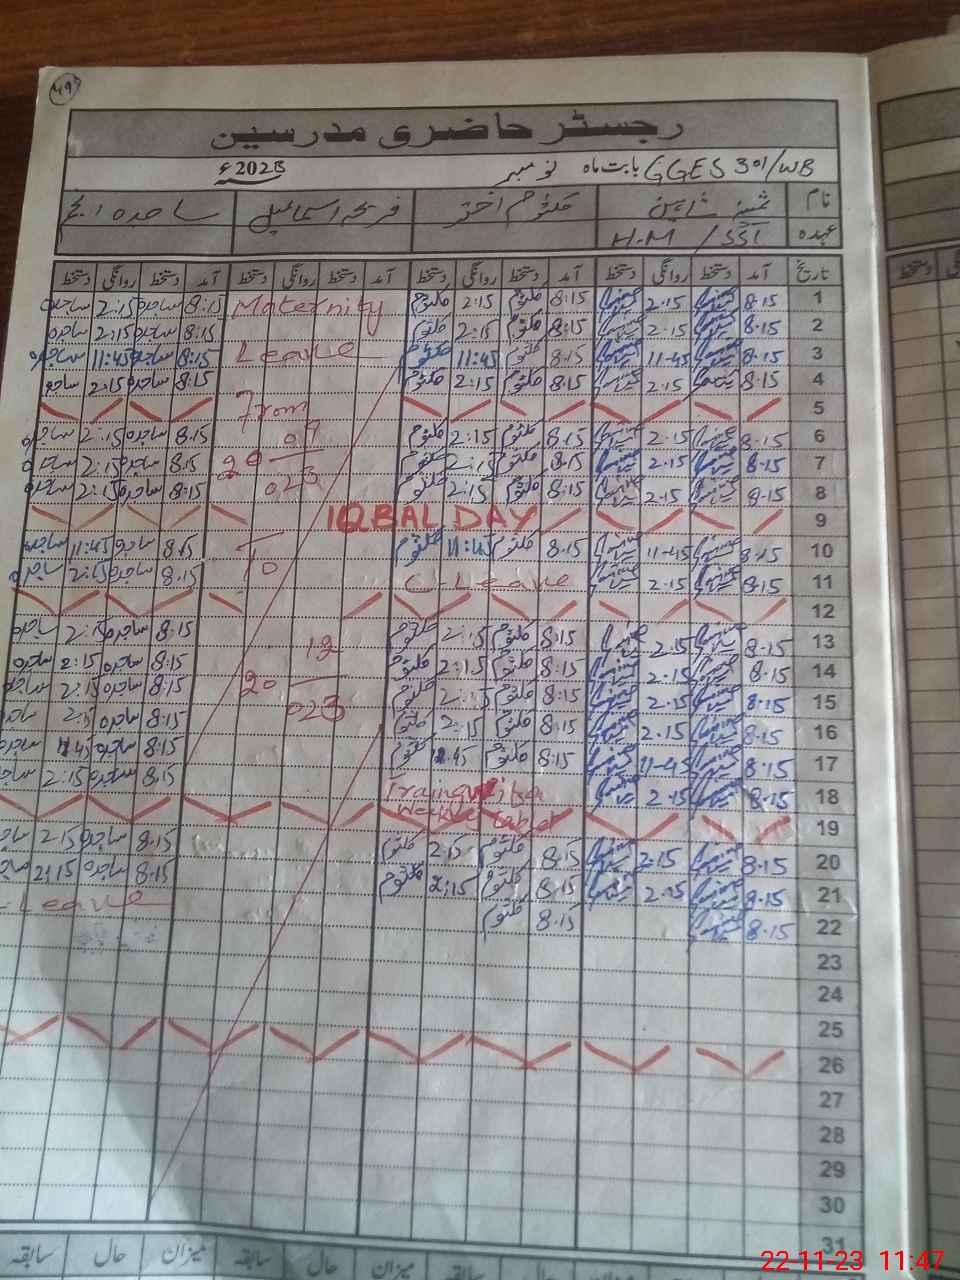 49
رجسٹر حاضری مدرسین
GGES 301/WB بابت ماہ نومبر 2023ء
نام ثمینہ شاہین کلثوم اختر فریحہ اسماعیل ساجدہ
عہدہ H.M / SST
تاریخ آمد دستخط روانگی دستخط آمد دستخط روانگی دستخط آمد دستخط روانگی دستخط آمد دستخط روانگی دستخط
1 8.15 2.15 8:15 کلثوم 2:15 کلثوم Maternity 8:15 ساجدہ 2:15 ساجدہ
2 8.15 2.15 8:15 کلثوم 2:15 کلثوم 8:15 ساجدہ 2:15 ساجدہ
3 8.15 11-45 8:15 کلثوم 11:45 کلثوم Leave 8:15 ساجدہ 11:45 ساجدہ
4 8.15 2.15 8:15 کلثوم 2:15 کلثوم 8:15 ساجدہ 2:15 ساجدہ
5 From
6 8.15 2.15 8:15 کلثوم 2:15 کلثوم 09 8:15 ساجدہ 2:15 ساجدہ
7 8.15 2.15 8:15 کلثوم 2:15 کلثوم 20 8:15 ساجدہ 2:15 ساجدہ
8 8.15 2.15 8:15 کلثوم 2:15 کلثوم 023 8:15 ساجدہ 2:15 ساجدہ
9 IQBAL DAY
10 8.15 11-45 8:15 کلثوم 11:45 کلثوم To 8:15 ساجدہ 11:45 ساجدہ
11 8.15 2.15 C-Leave 8:15 ساجدہ 2:15 ساجدہ
12
13 8.15 2.15 8:15 کلثوم 2:15 کلثوم 12 8:15 ساجدہ 2:15 ساجدہ
14 8.15 2.15 8:15 کلثوم 2:15 کلثوم 20 8:15 ساجدہ 2:15 ساجدہ
15 8.15 2.15 8:15 کلثوم 2:15 کلثوم 023 8:15 ساجدہ 2:15 ساجدہ
16 8.15 2.15 8:15 کلثوم 2:15 کلثوم 8:15 ساجدہ 2:15 ساجدہ
17 8.15 11-45 8:15 کلثوم 11.45 کلثوم 8:15 ساجدہ 11:45 ساجدہ
18 8.15 2.15 8:15 ساجدہ 2:15 ساجدہ
19
20 8.15 2.15 8:15 کلثوم 2:15 کلثوم 8:15 ساجدہ 2:15 ساجدہ
21 8.15 2.15 8:15 کلثوم 2:15 کلثوم 8:15 ساجدہ 2:15 ساجدہ
22 8.15 8:15 کلثوم Leave
23
24
25
26
27
28
29
30
31
میزان حال سابقہ میزان حال سابقہ
22-11-23 11:47